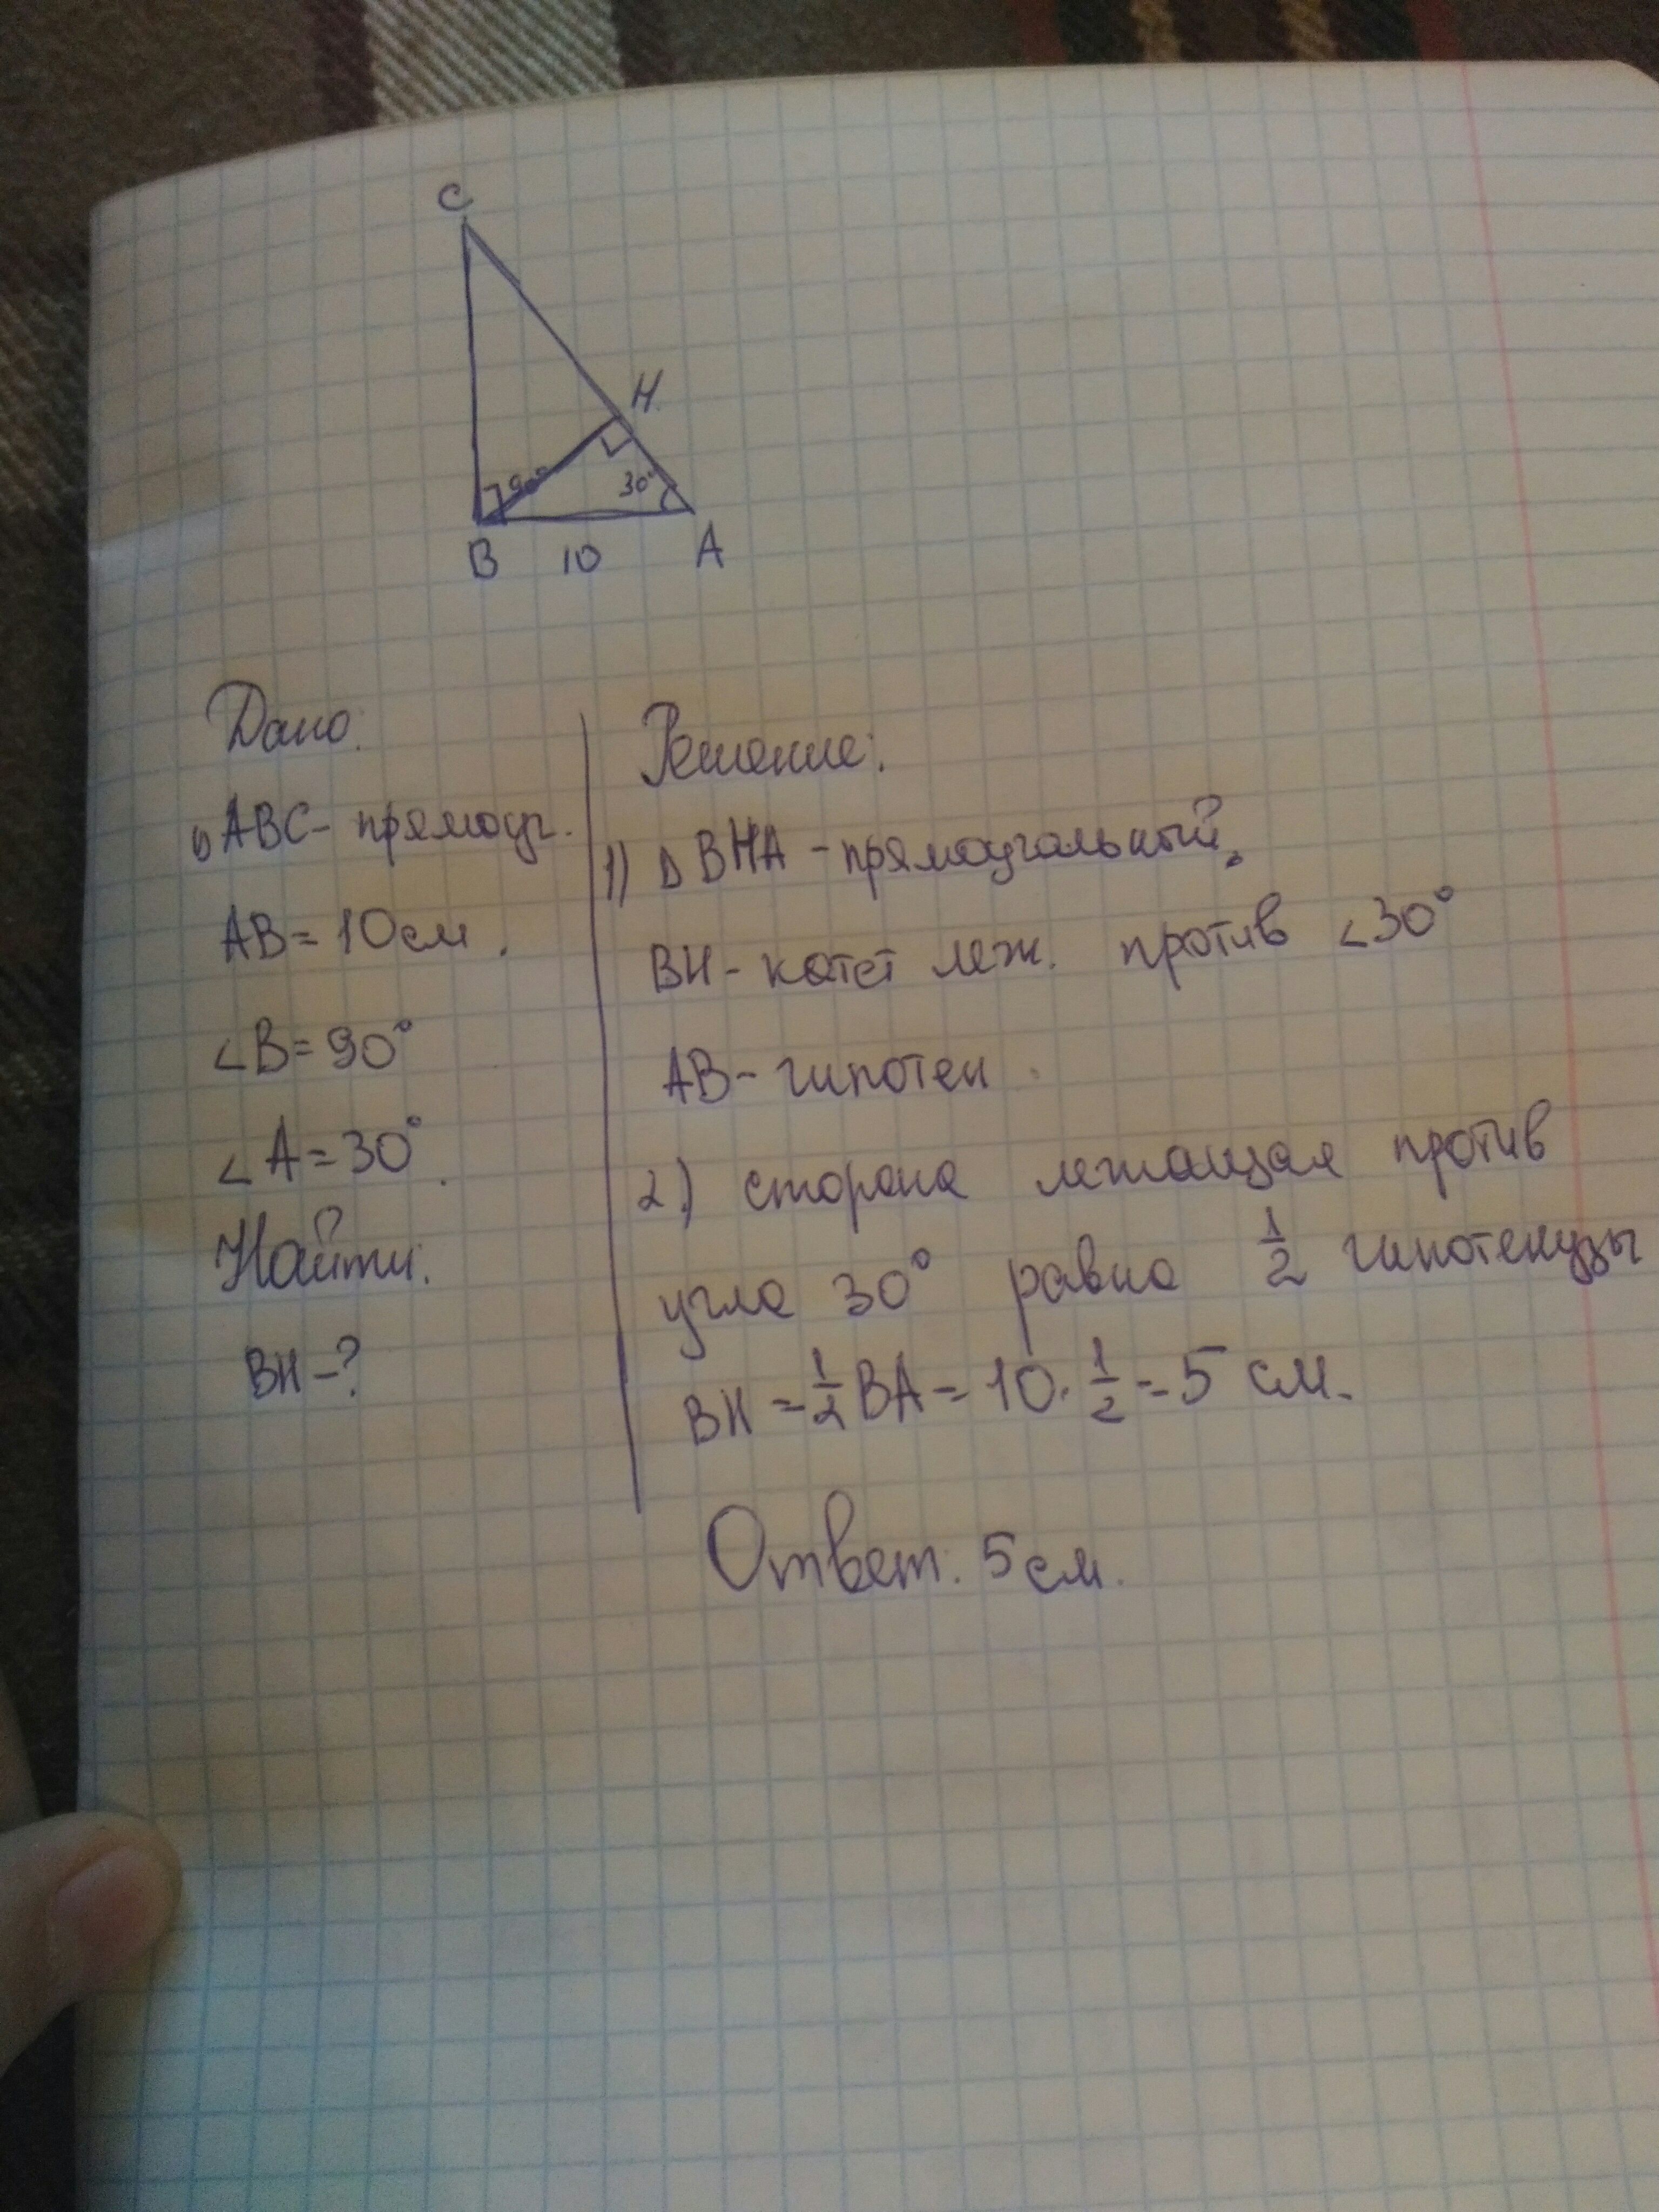 C
H
90°
30°
B 10 A
Дано:
△ABC - прямоуг.
AB = 10см.
∠B = 90°
∠A = 30°.
Найти:
BH - ?
Решение:
1) △BHA - прямоугольный.
BH - катет леж. против ∠30°
AB - гипотен
2.) сторона лежащая против
угла 30° равна 1/2 гипотенузы
BH = 1/2 BA = 10 · 1/2 = 5 см.
Ответ: 5 см.